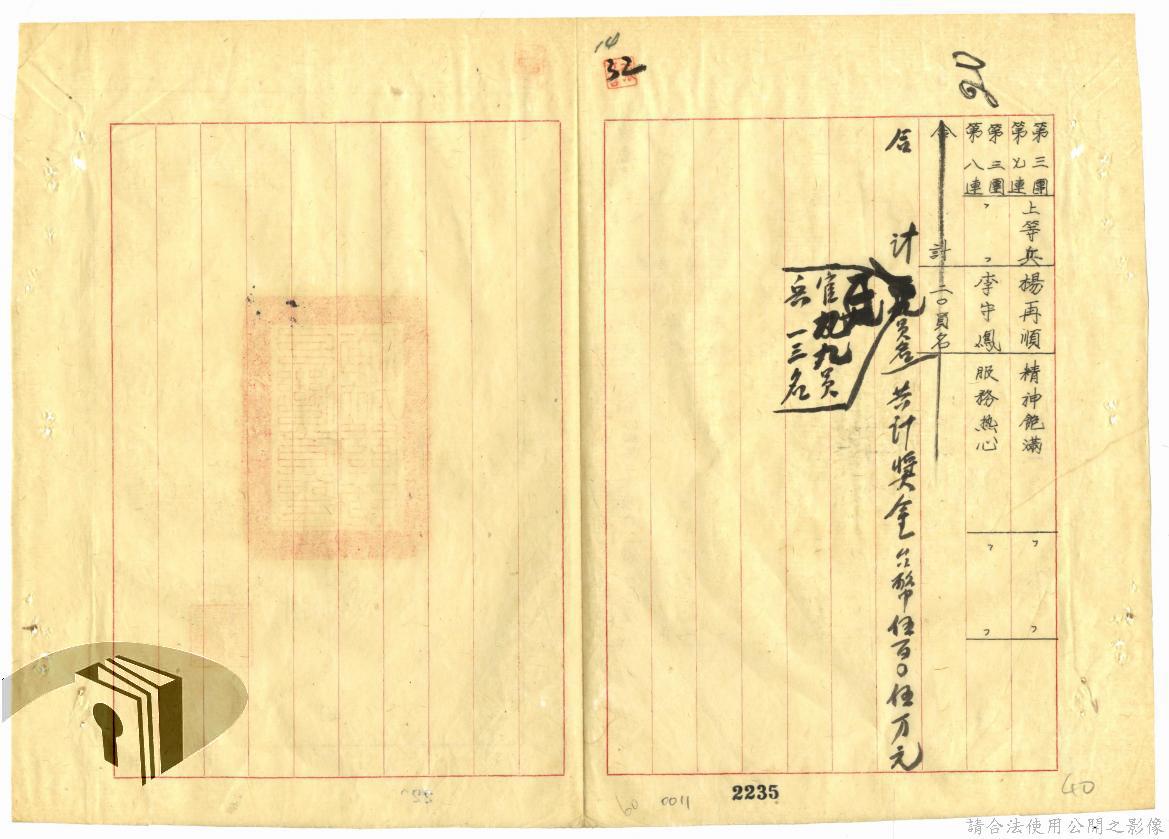 14
32
第三團第七連 上等兵 楊再順 精神飽滿 〃 〃
第三團第八連 〃 〃 李守鳳 服務熱心 〃 〃
合計 二〇員名
合計 員名 共計獎金台幣伍百〇伍万元
官 九員
兵 一三名
2235
0011
60
40
請合法使用公開之影像